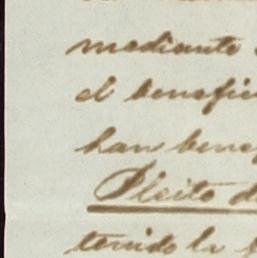 mediante
el benefici
han benef
Pleito d
tenido la